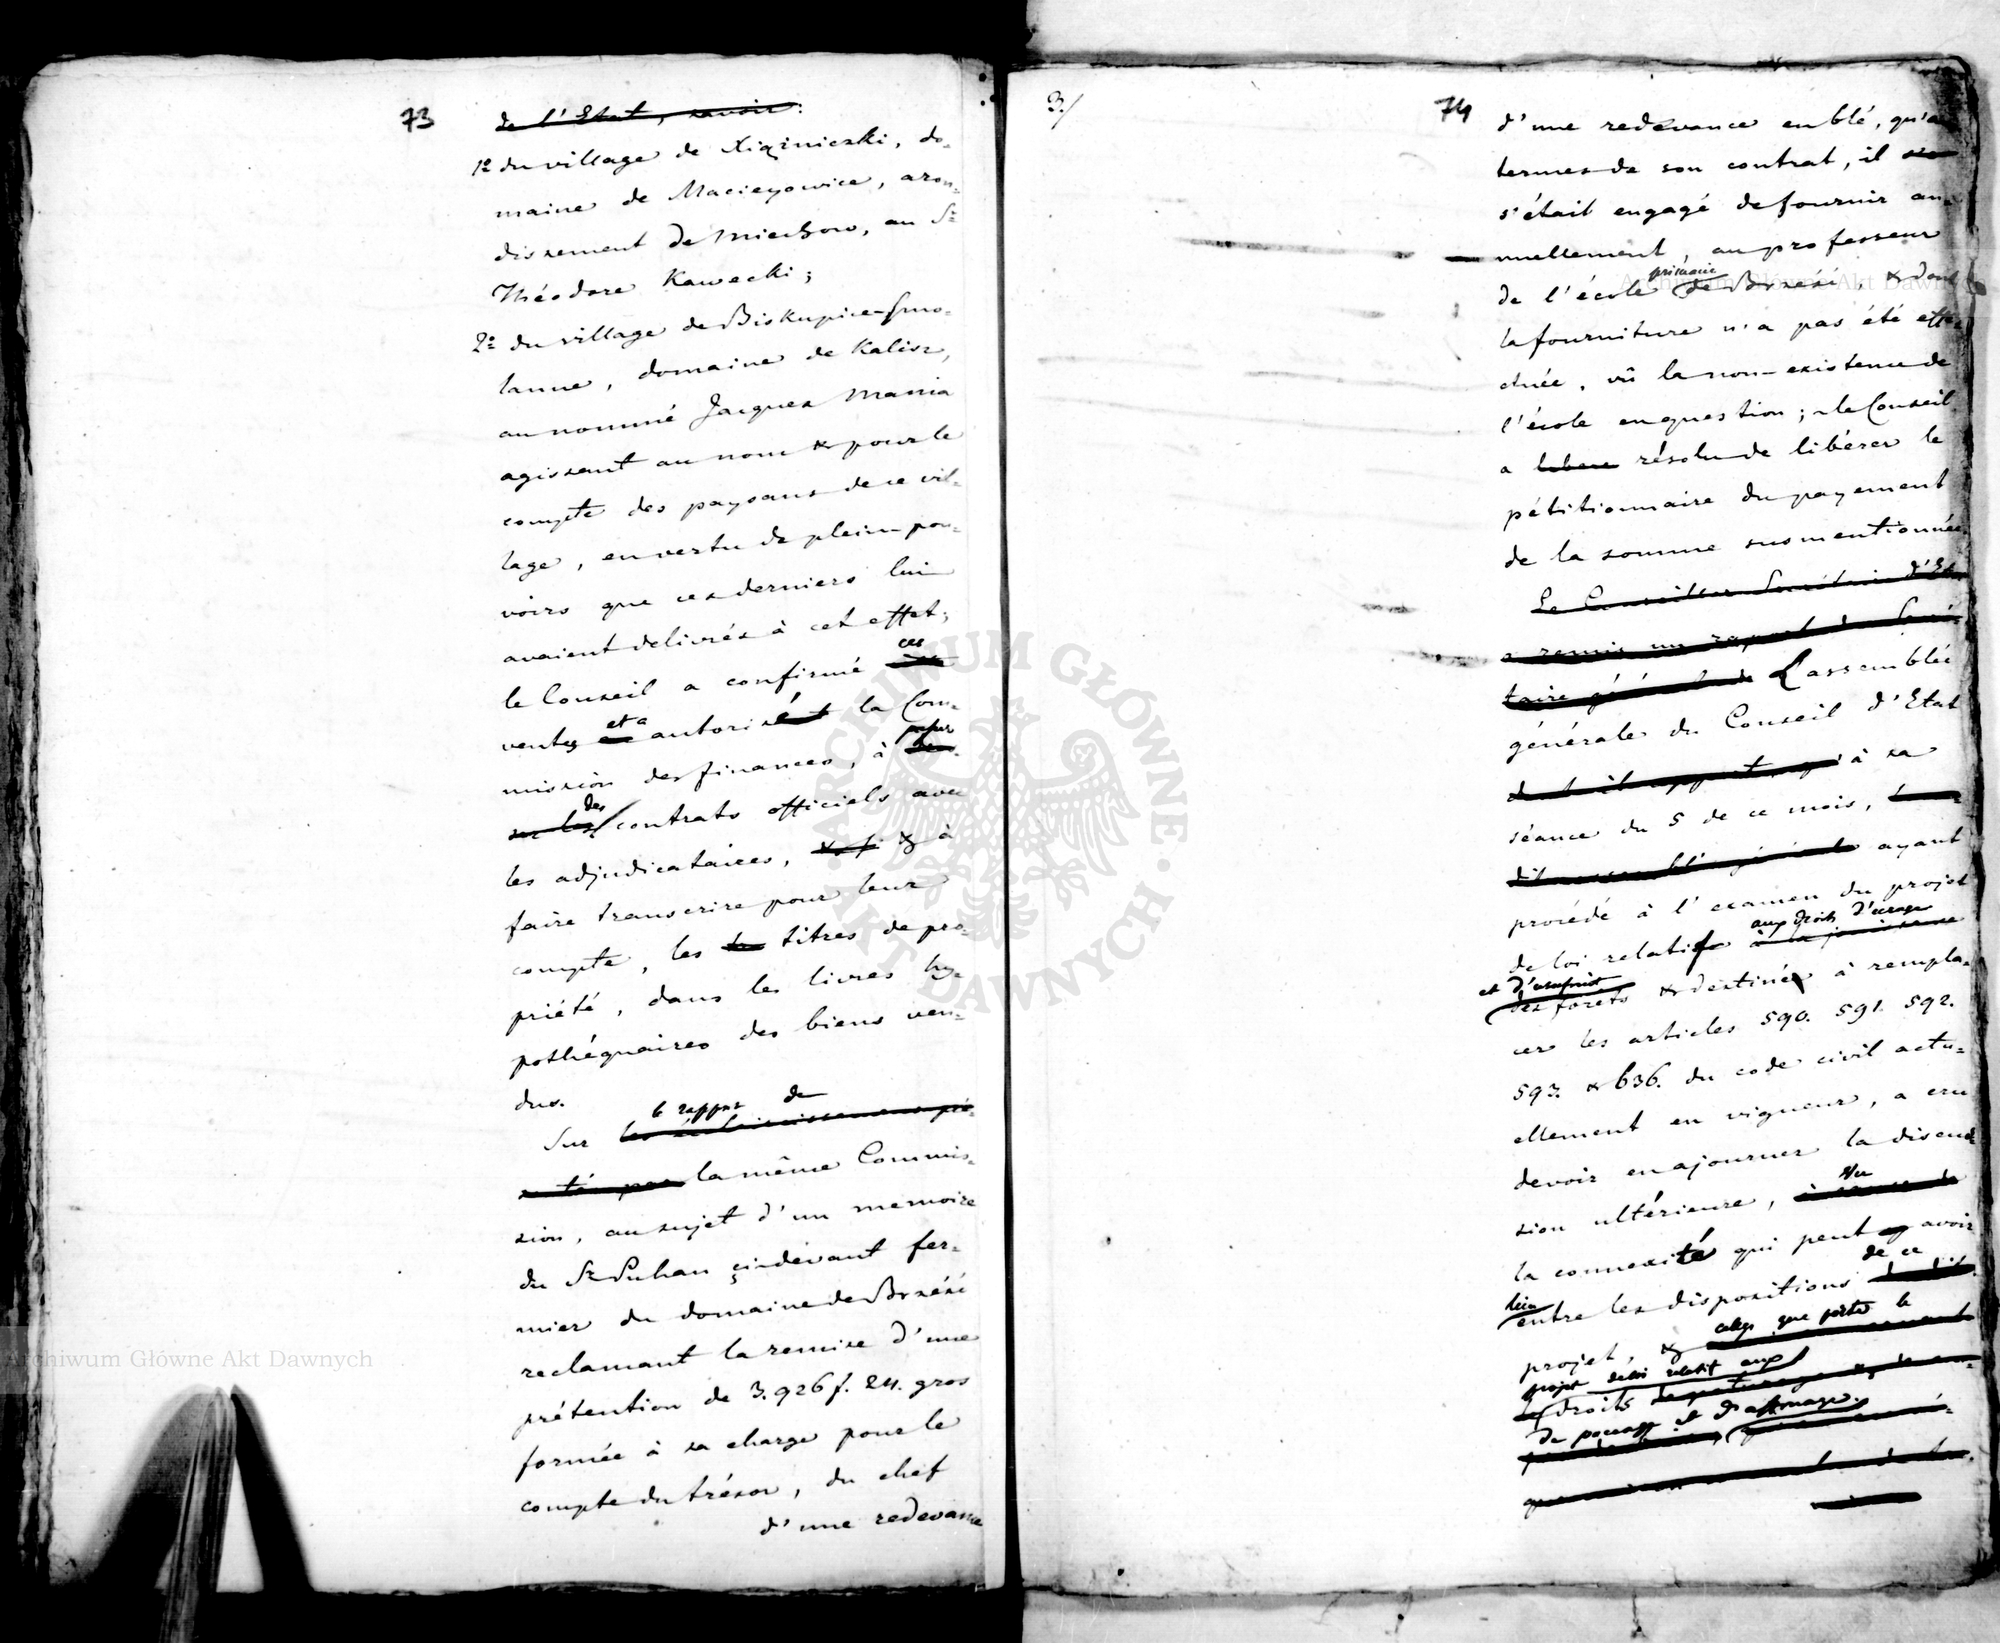 73
de l'Etat, savoir:
1º du village de Xiąźnieczki, do-
maine de Macieyowice, aron-
dissement de Miechow, au Sr
Théodore Kawecki;
2º du village de Biskupice-Smo-
lanne, domaine de Kalisz,
au nommé Jacques Mania
agissant au nom & pour le
compte des paysans de ce vil-
lage, en vertu de pleins pou-
voirs que ces derniers lui
avaient delivrés à cet effet;
le Conseil a confirmé ces
ventes et a autorisé la Com-
mission des finances, à passer
des contrats officiels avec
les adjudicataires, & à
faire transcrire pour leur
compte, les titres de pro-
priété, dans les livres hy-
pothéquaires des biens ven-
dus.
Sur le rapport de
la même Commis-
sion, au sujet d'un memoire
du Sr Puhan ci-devant fer-
mier du domaine de Brzézé
reclamant la remise d'une
prétention de 3.926 f. 24. gros
formée à sa charge pour le
compte du trésor, du chef
d'une redevance
3./
74
d'une redevance en blé, qu'au
termes de son contrat, il
s'était engagé de fournir an-
nuellement, au professeur
de l'école primaire de Brzézé, & dont
la fourniture n'a pas été effe-
ctuée, vû la non-existence de
l'école en question; le Conseil
a libere résolu de libérer le
pétitionnaire du payement
de la somme susmentionnée
Le Conseiller Secrétaire d'Et.
a remis un rapport du Secré-
taire général de L'assemblée
générale du Conseil d'Etat
dont il appert, qu' à sa
séance du 5 de ce mois,
dite assemblée générale ayant
procédé à l'examen du projet
de loi relatif aux droits d'usage à la jouissance
et d'usufruit des forêts & destiné à rempla-
cer les articles 590. 591. 592.
593. & 636. du code civil actu-
ellement en vigueur, a cru
devoir en ajourner la discus-
sion ultérieure, vu
la connexité qui peut avoir
lieu entre les dispositions de ce
projet, & celles que porte le
projet de loi relatif aux
droits
de pacage et d'affouage.